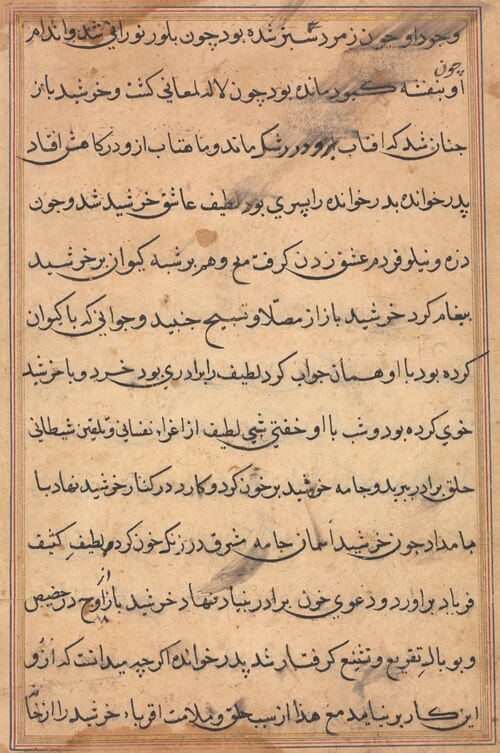 وجود او چون زمرد سبز شده بود چون بلور نورانی شد و اندام
چون
او بنفشه کبود مانده بود چون لاله لمعانی کشت و خرشید باز
جنان شد که افتاب برو در رشک ماند و ماهتاب ازو در کاهش افتاد
پدر خوانده بدر خوانده را پسری بود لطیف عاشق خرشید شد و چون
ذره و نیلوفر دم عشق زدن کرفت مع وهم بر شبه کیوان بر خرشید
پیغام کرد خرشید باز از مصلا و تسبیح جنبید و جوابی که با کیوان
کرده بود با او همان جواب کرد لطیف را برادری بود خرد و با خرشید
خوی کرده بود و شب با او خفتی شبی لطیف از اغراء نفسانی و تلقین شیطانی
حلق برادر ببرید و جامه خرشید بر خون کرد و کارد در کنار خرشید نهاد با
مامداد جون خرشید اسمان جامه مشرق در زنک خون کرد لطیف کثیف
فریاد براورد و دعوی خون برادر بنیاد نهاد خرشید باز از اوج در حضیض
و بوبال تقریع و تشنع کرفتار شد پدر خوانده اکرچه میدانست که ازو
این کار بر نیامد مع هذا از سبب خلق و ملامت اقرباء خرشید را از